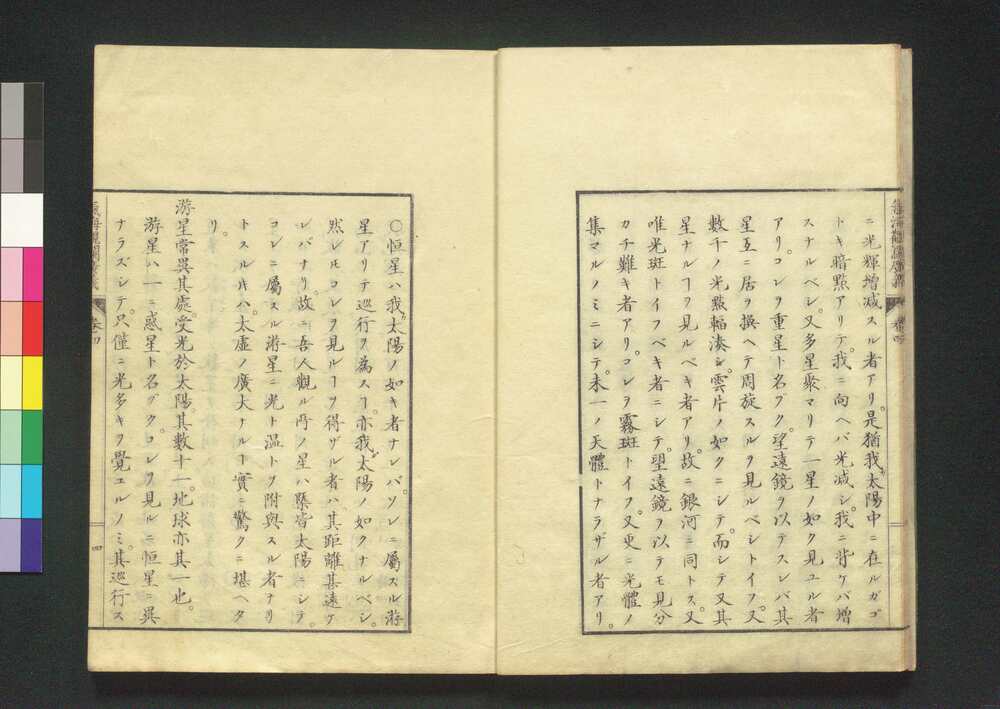 ニ光輝増减スル者アリ。是猶我太陽中ニ在ルガゴ
トキ暗點アリテ。我ニ向ヘバ光减シ。我ニ背ケバ増
スナルベシ。又多星聚マリテ一星ノ如ク見ユル者
アリ。コレヲ重星ト名ヅク。望遠鏡ヲ以テスレバ其
星互ニ居ヲ換ヘテ周旋スルヲ見ルベシトイフ。又
數千ノ光點輻湊シ。雲片ノ如クニシテ。而シテ又其
星ナルヿヲ見ルベキ者アリ。故ニ銀河ニ同トス。又
唯光斑トイフベキ者ニシテ。望遠鏡ヲ以テモ見分
カチ難キ者アリ。コレヲ霧斑トイフ。又更ニ光體ノ
集マルノミニシテ。未一ノ天體トナラザル者アリ。
〇恒星ハ我太陽ノ如キ者ナレバ。ソレニ屬スル游
星アリテ巡行ヲ為スヿ。亦我太陽ノ如クナルベシ。
然レ𪜈コレヲ見ルヿヲ得ザル者ハ。其距離甚遠ケ
レバナリ。故ニ吾人觀ル所ノ星ハ。縣皆太陽ニシテ。
コレニ屬スル游星ニ光ト温トヲ附與スル者ナリ
トスル𪜈ハ。太虚ノ廣大ナルヿ實ニ驚クニ堪ヘタ
リ。
游星常異其處。受光於太陽其數十一。地球亦其一也。
游星ハ一ニ惑星ト名ヅク。コレヲ見ルニ恒星ニ異
ナラズシテ。只僅ニ光多キヲ覺ユルノミ。其巡行ス
卷四
四